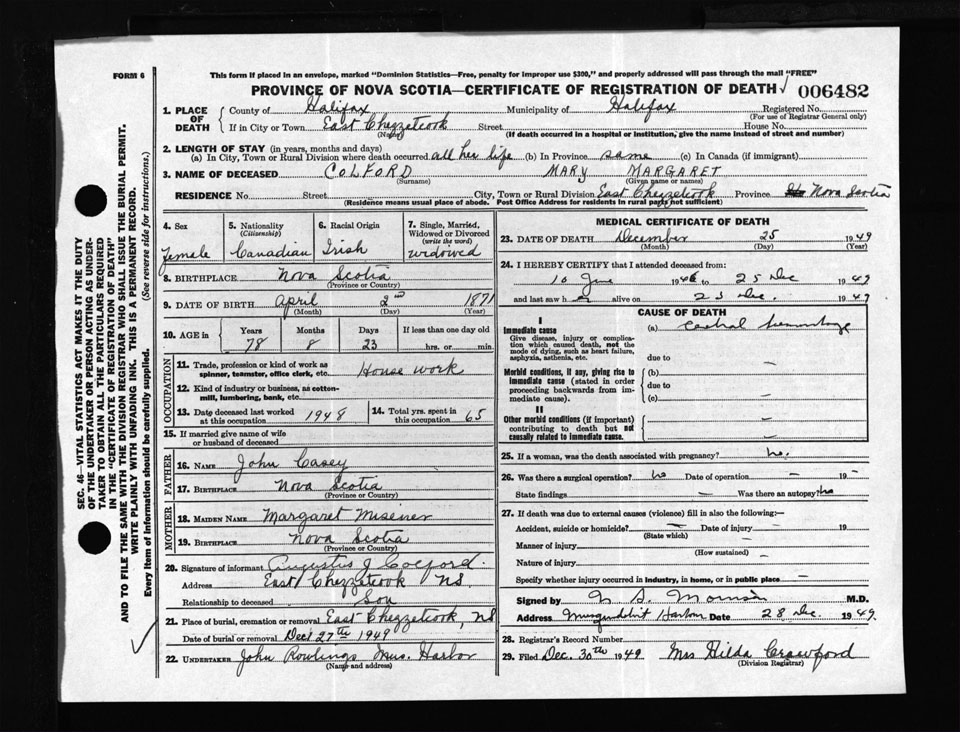 FORM 6
This form if placed in an envelope, marked "Dominion Statistics—Free, penalty for improper use $300," and properly addressed will pass through the mail "FREE"
PROVINCE OF NOVA SCOTIA—CERTIFICATE OF REGISTRATION OF DEATH √ 006482
1. PLACE OF DEATH
County of Halifax Municipality of Halifax Registered No.
(For use of Registrar General only)
If in City or Town East Chezzetcook Street House No.
(Name) (If death occurred in a hospital or institution, give the name instead of street and number)
2. LENGTH OF STAY (in years, months and days)
(a) In City, Town or Rural Division where death occurred all her life (b) In Province same (c) In Canada (if immigrant)
3. NAME OF DECEASED COLFORD MARY MARGARET
(Surname) (Given name or names)
RESIDENCE No. Street City, Town or Rural Division East Chezzetcook Province Nova Scotia
(Residence means usual place of abode. Post Office Address for residents in rural parts not sufficient)
4. Sex
female
5. Nationality
(Citizenship)
Canadian
6. Racial Origin
Irish
7. Single, Married, Widowed or Divorced
(write the word)
widowed
8. BIRTHPLACE Nova Scotia
(Province or Country)
9. DATE OF BIRTH April 2nd 1871
(Month) (Day) (Year)
10. AGE in
Years Months Days If less than one day old
78 8 23 hrs. or min.
OCCUPATION
11. Trade, profession or kind of work as House work
spinner, teamster, office clerk, etc.
12. Kind of industry or business, as cotton-
mill, lumbering, bank, etc.
13. Date deceased last worked at this occupation 1948
14. Total yrs. spent in this occupation 65
15. If married give name of wife
or husband of deceased
FATHER
16. NAME John Casey
17. BIRTHPLACE Nova Scotia
(Province or Country)
MOTHER
18. MAIDEN NAME Margaret Misener
19. BIRTHPLACE Nova Scotia
(Province or Country)
20. Signature of informant Augustus J Colford.
Address East Chezzetcook NS.
Relationship to deceased Son
21. Place of burial, cremation or removal East Chezzetcook, NS
Date of burial or removal Dec 27th 1949
22. UNDERTAKER John Rowlings Mus. Harbor
(Name and address)
MEDICAL CERTIFICATE OF DEATH
23. DATE OF DEATH December 25 1949
(Month) (Day) (Year)
24. I HEREBY CERTIFY that I attended deceased from:
10 June 1946 to 25 Dec 1949
and last saw h er alive on Dec. 1949
CAUSE OF DEATH
I
Immediate cause (a)
Give disease, injury or complica-
tion which caused death, not the
mode of dying, such as heart failure,
asphyxia, asthenia, etc.
due to —
Morbid conditions, if any, giving rise to
immediate cause (stated in order
proceeding backwards from im-
mediate cause).
(b) —
due to
(c) —
II
Other morbid conditions (if important)
contributing to death but not
causally related to immediate cause.
—
—
25. If a woman, was the death associated with pregnancy? no.
26. Was there a surgical operation? no Date of operation — 19 —
State findings — Was there an autopsy? no
27. If death was due to external causes (violence) fill in also the following:—
Accident, suicide or homicide? — Date of injury — 19
(State which)
Manner of injury —
(How sustained)
Nature of injury —
Specify whether injury occurred in industry, in home, or in public place —
Signed by M.D.
Address Musquodoboit Harbor Date 28 Dec. 1949
28. Registrar's Record Number
29. Filed Dec. 30th 1949 Mrs Hilda Crawford
(Division Registrar)
SEC. 46—VITAL STATISTICS ACT MAKES IT THE DUTY
OF THE UNDERTAKER OR PERSON ACTING AS UNDER-
TAKER TO OBTAIN ALL THE PARTICULARS REQUIRED
IN THE "CERTIFICATE OF REGISTRATION OF DEATH"
AND TO FILE THE SAME WITH THE DIVISION REGISTRAR WHO SHALL ISSUE THE BURIAL PERMIT.
WRITE PLAINLY WITH UNFADING INK. THIS IS A PERMANENT RECORD.
Every item of information should be carefully supplied. (See reverse side for instructions.)